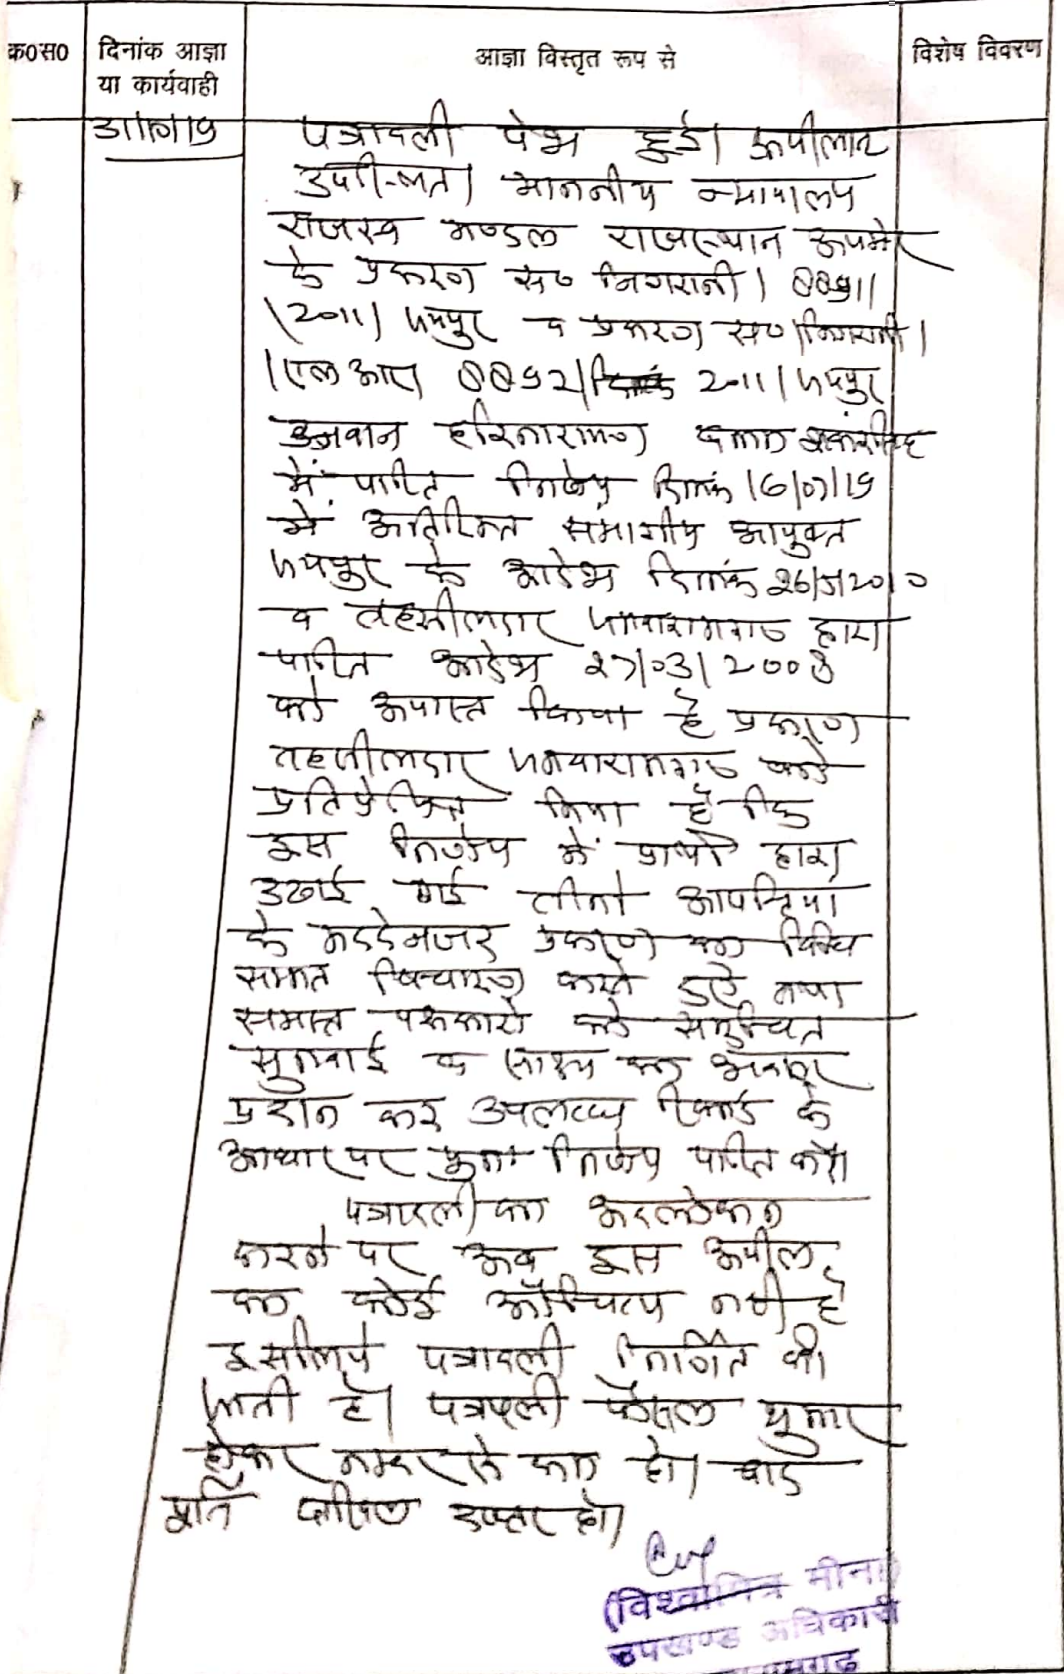 क०स० दिनांक आज्ञा आज्ञा विस्तृत रूप से विशेष विवरण
या कार्यवाही
पत्रावली पेश हुई। अपीलान्ट
उपस्थित। माननीय न्यायालय
राजस्व मण्डल राजस्थान अजमेर
के प्रकरण स० निगरानी। 8851।
।2011। जयपुर व प्रकरण स०।निगरानी।
।एल आर। 8852। 2011। जयपुर
उनवान हरिनारायण बनाम
में पारित निर्णय दिनांक 16/07/19
में अतिरिक्त संभागीय आयुक्त
जयपुर के आदेश दिनांक 26/5/2010
व तहसीलदार जमवारामगढ द्वारा
पारित आदेश 27/03/2008
को अपास्त किया है प्रकरण
तहसीलदार जमवारामगढ को
प्रतिप्रेषित किया है कि
इस निर्णय में प्रार्थी द्वारा
उठाई गई तीनो आपत्तियां
के मद्देनजर प्रकरण का विधि
सम्मत विचारण करते हुऐ तथा
समस्त पक्षकारो को समुचित
सुनवाई व साक्ष्य का अवसर
प्रदान कर उपलब्ध रिकार्ड के
आधार पर पुनः निर्णय पारित करे।
पत्रावली का अवलोकन
करने पर अब इस अपील
का कोई औचित्य नही है
इसलिये पत्रावली निर्णित की
जाती है। पत्रावली फैसल शुमार
होकर नम्बर से कम हो। बाद
पूर्ति दाखिल दफ्तर हो।
(विश्वामित्र मीना)
उपखण्ड अधिकारी